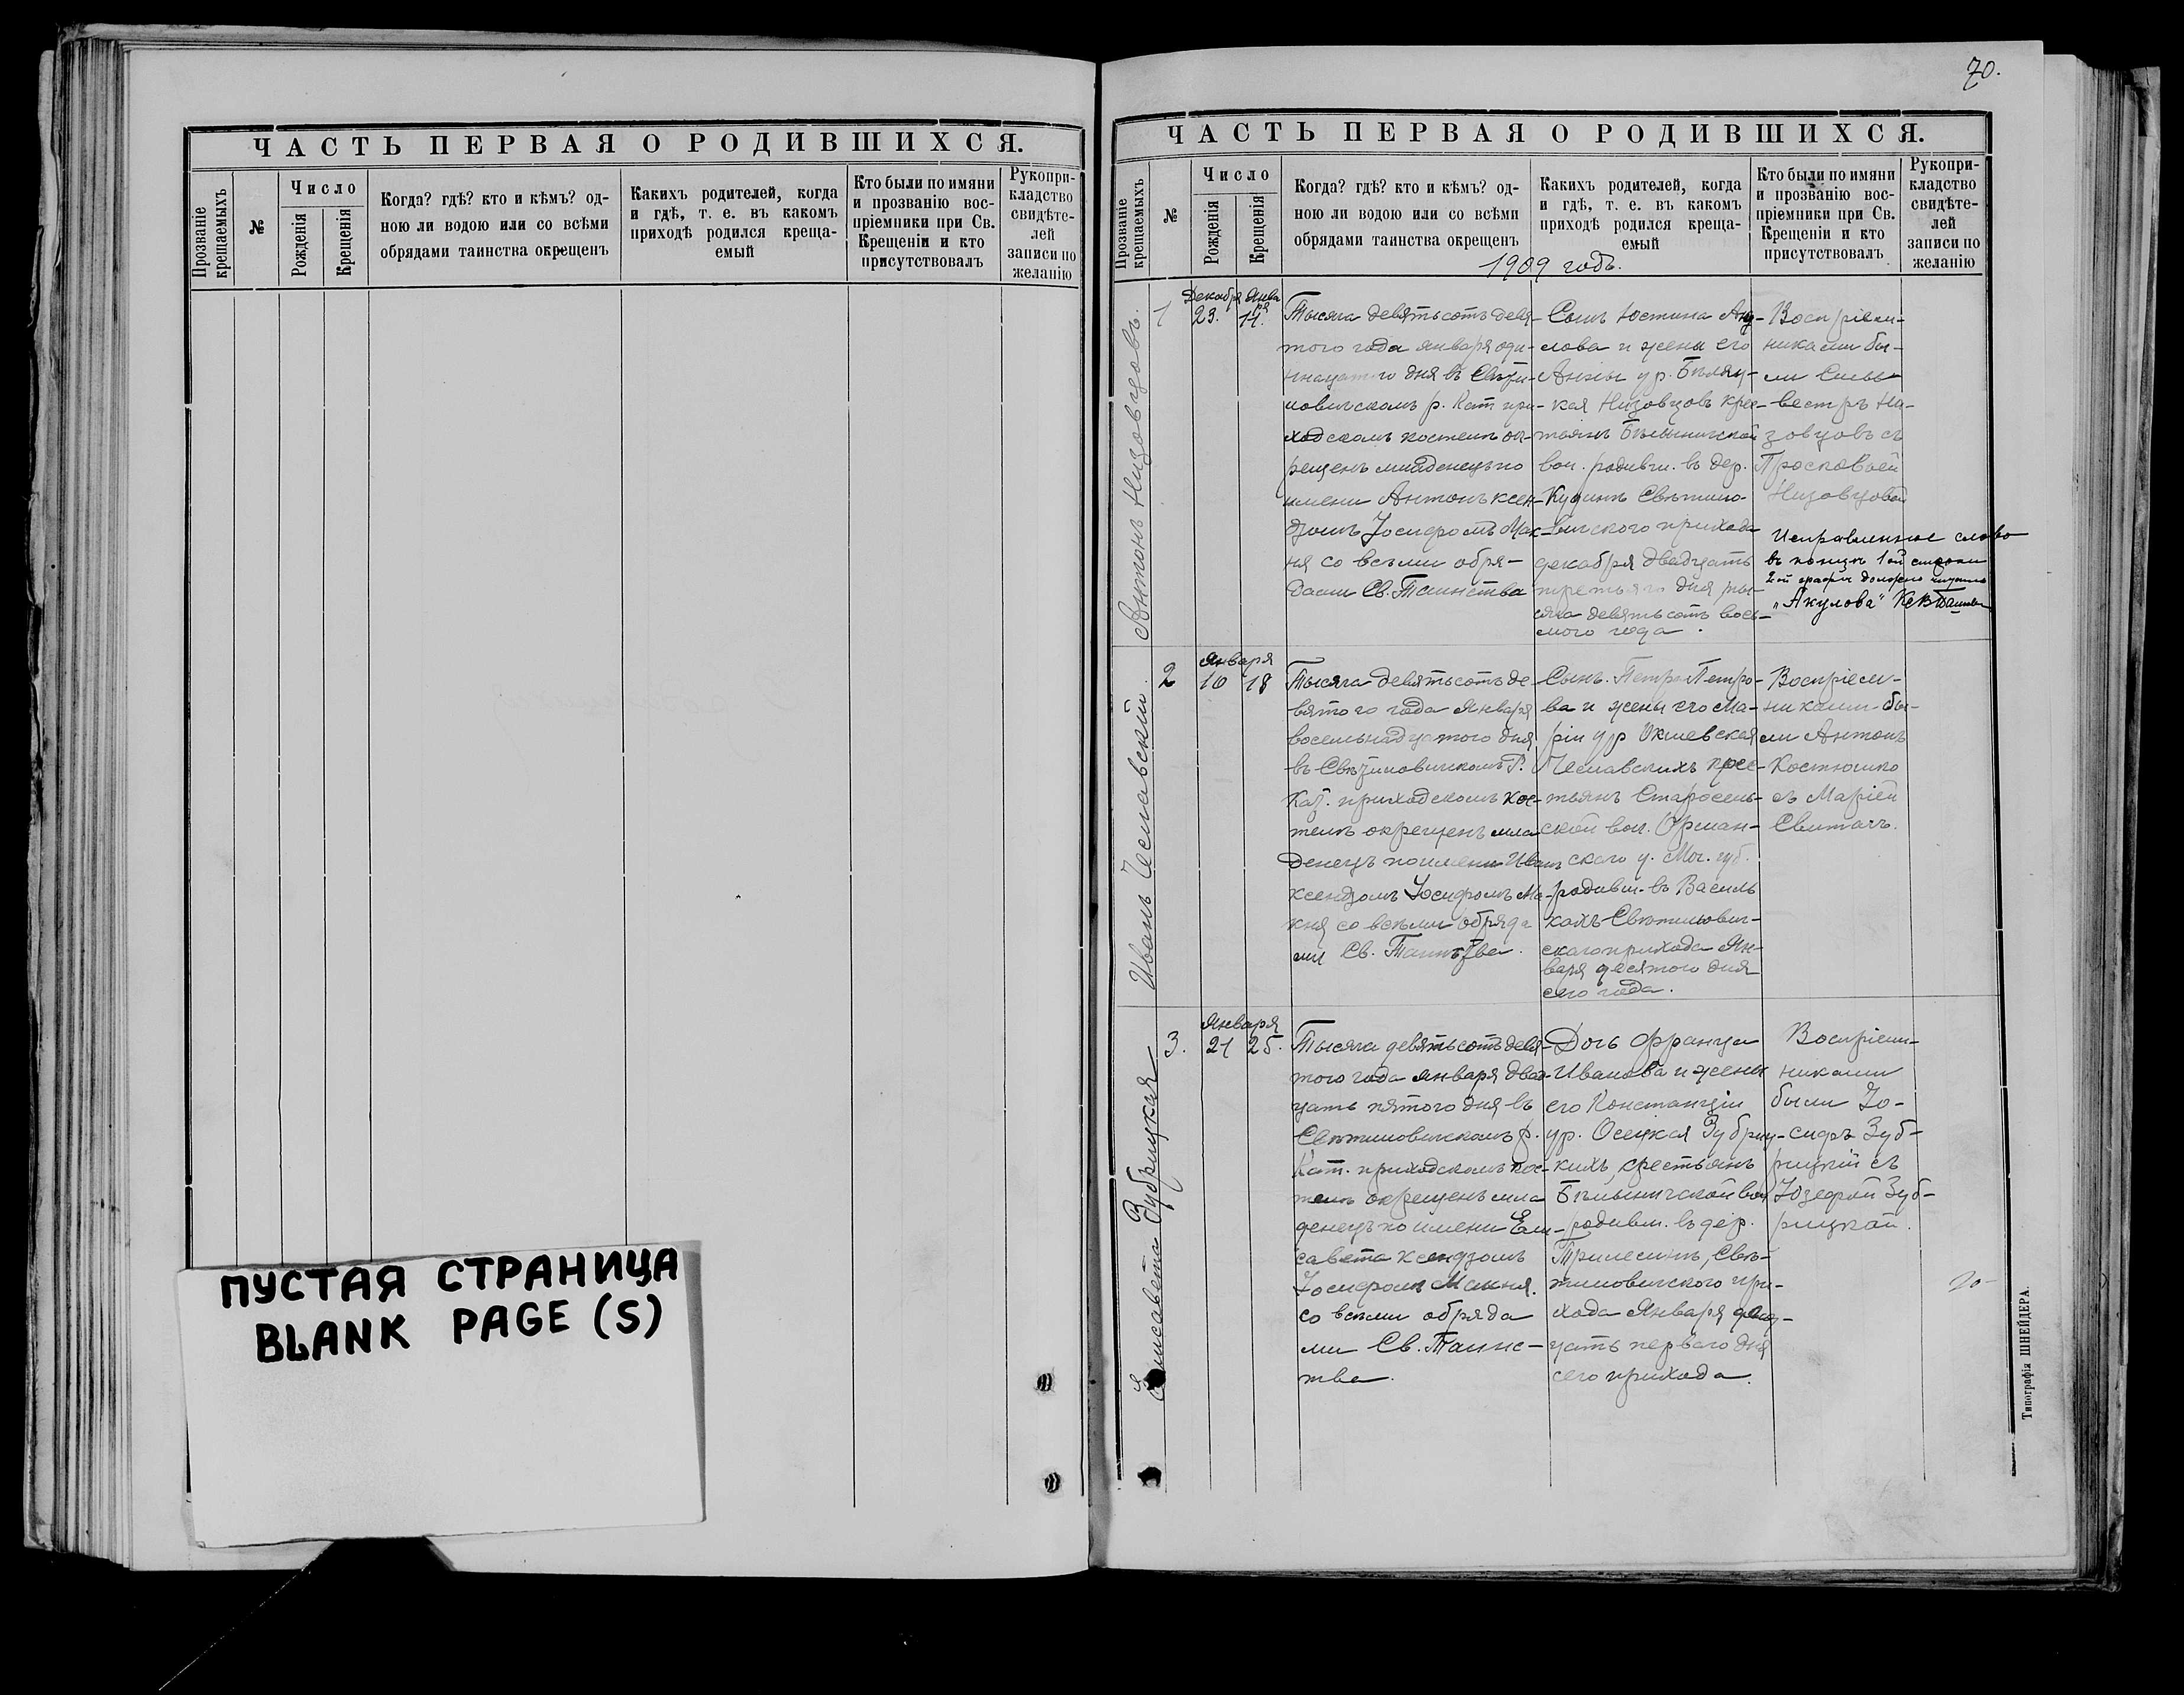 ЧАСТЬ ПЕРВАЯ О РОДИВШИХСЯ.
Прозваніе крещаемыхъ
№
Число
Рожденія
Крещенія
Когда? гдѣ? кто и кѣмъ? од-
ною ли водою или со всѣми
обрядами таинства окрещенъ
Какихъ родителей, когда
и гдѣ, т. е. въ какомъ
приходѣ родился креща-
емый
Кто были по имяни
и прозванію вос-
пріемники при Св.
Крещеніи и кто
присутствовалъ
Рукопри-
кладство
свидѣте-
лей
записи по
желанію
ПУСТАЯ СТРАНИЦА
BLANK PAGE (S)
70.
ЧАСТЬ ПЕРВАЯ О РОДИВШИХСЯ.
Прозваніе крещаемыхъ
№
Число
Рожденія
Крещенія
Когда? гдѣ? кто и кѣмъ? од-
ною ли водою или со всѣми
обрядами таинства окрещенъ
Какихъ родителей, когда
и гдѣ, т. е. въ какомъ
приходѣ родился креща-
емый
Кто были по имяни
и прозванію вос-
пріемники при Св.
Крещеніи и кто
присутствовалъ
Рукопри-
кладство
свидѣте-
лей
записи по
желанію
1909 годъ.
Антонъ Низовцовъ.
1
Декабря
23.
Января
11.
Тысяча девятьсотъ девя-
того года января оди-
ннадцатаго дня въ Свѣти-
новичскомъ р. Кат при-
ходскомъ костелѣ ок-
рещенъ младенецъ по
имени Антонъ ксен-
дзомъ Іосифомъ Мак-
ня со всѣми обря-
дами Св. Таинства
Сынъ Юстина
лова и жены его
Анны ур. Бѣляц-
кая Низовцовъ крес-
тьянъ Бѣлыничской
вол. родивш. въ дер.
Кудинѣ Свѣтино-
вичскаго прихода
декабря двадцать
третьяго дня ты-
сяча девятьсотъ вось-
мого года.
Воспріем-
никами бы-
ли Силь-
вестръ Ни-
зовцовъ съ
Просковьей
Низовцовой
Исправленное слово
въ концѣ 1ой строки
2ой графы должно читать
„Акулова“
Иванъ Чеславскій.
2
Января
10 18
Тысяча девятьсотъ де-
вятого года Января
восемнадцатого дня
въ Свѣтиновичскомъ Р.
Кат. приходскомъ кос-
телѣ окрещенъ мла
денецъ по имени Иванъ
ксендзомъ Іосифомъ Ма-
кня со всѣми обряда
ми Св. Таинства.
Сынъ Петра Петро-
ва и жены его Ма-
ріи ур
Чеславскихъ крес-
тьянъ Старосель-
ской вол. Оршан-
скаго у. Мог. губ.
родивш. въ Василь
кахъ Свѣтинович-
скаго прихода Ян-
варя десятого дня
сего года.
Воспріем-
никами бы-
ли Антонъ
Костюшко
съ Маріей
Свитачъ.
Елисавета Зубрицкая
3.
Января
21 25.
Тысяча девятьсотъ девя-
того года января двад-
цать пятого дня въ
Свѣтиновичскомъ р.
Кат. приходскомъ кос-
телѣ окрещенъ мла
денецъ по имени Ели-
савета ксендзомъ
Іосифомъ Макня.
со всѣми обряда
ми Св. Таинс-
тва.
Дочь Франца
Иванова и жены
его Констанціи
ур. Осецкая Зубриц-
кихъ, крестьянъ
Бѣлыничской вол
родивш. въ дер.
Трилесинѣ, Свѣ-
тиновичского при-
хода Января двад-
цать перваго дня
сего прихода.
Воспріем-
никами
были Іо-
сифъ Зуб-
рицкій съ
Юзефой Зуб-
рицкой.
20-
Типографія ШНЕЙДЕРА.